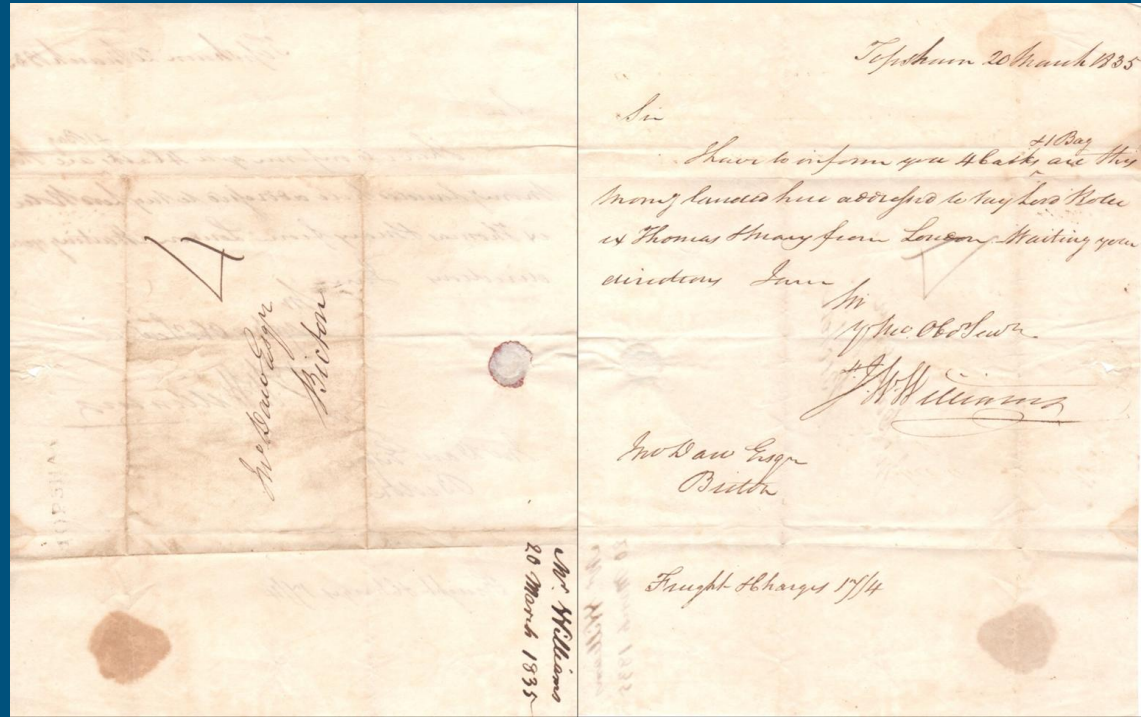 4
Jno Daw Esqr
Bicton
Mr Williams
20 March 1835
Topsham 20 March 1835
Sir
+1 Bag
I have to inform you 4 Casks are this
morng landed here addressed to Lord Rolle
ex Thomas & Mary from London. Waiting your
directions I am
Sir
Yr Obd Servt
J W Williams
Jno Daw Esqr
Bicton
Freight & Charges 17/4